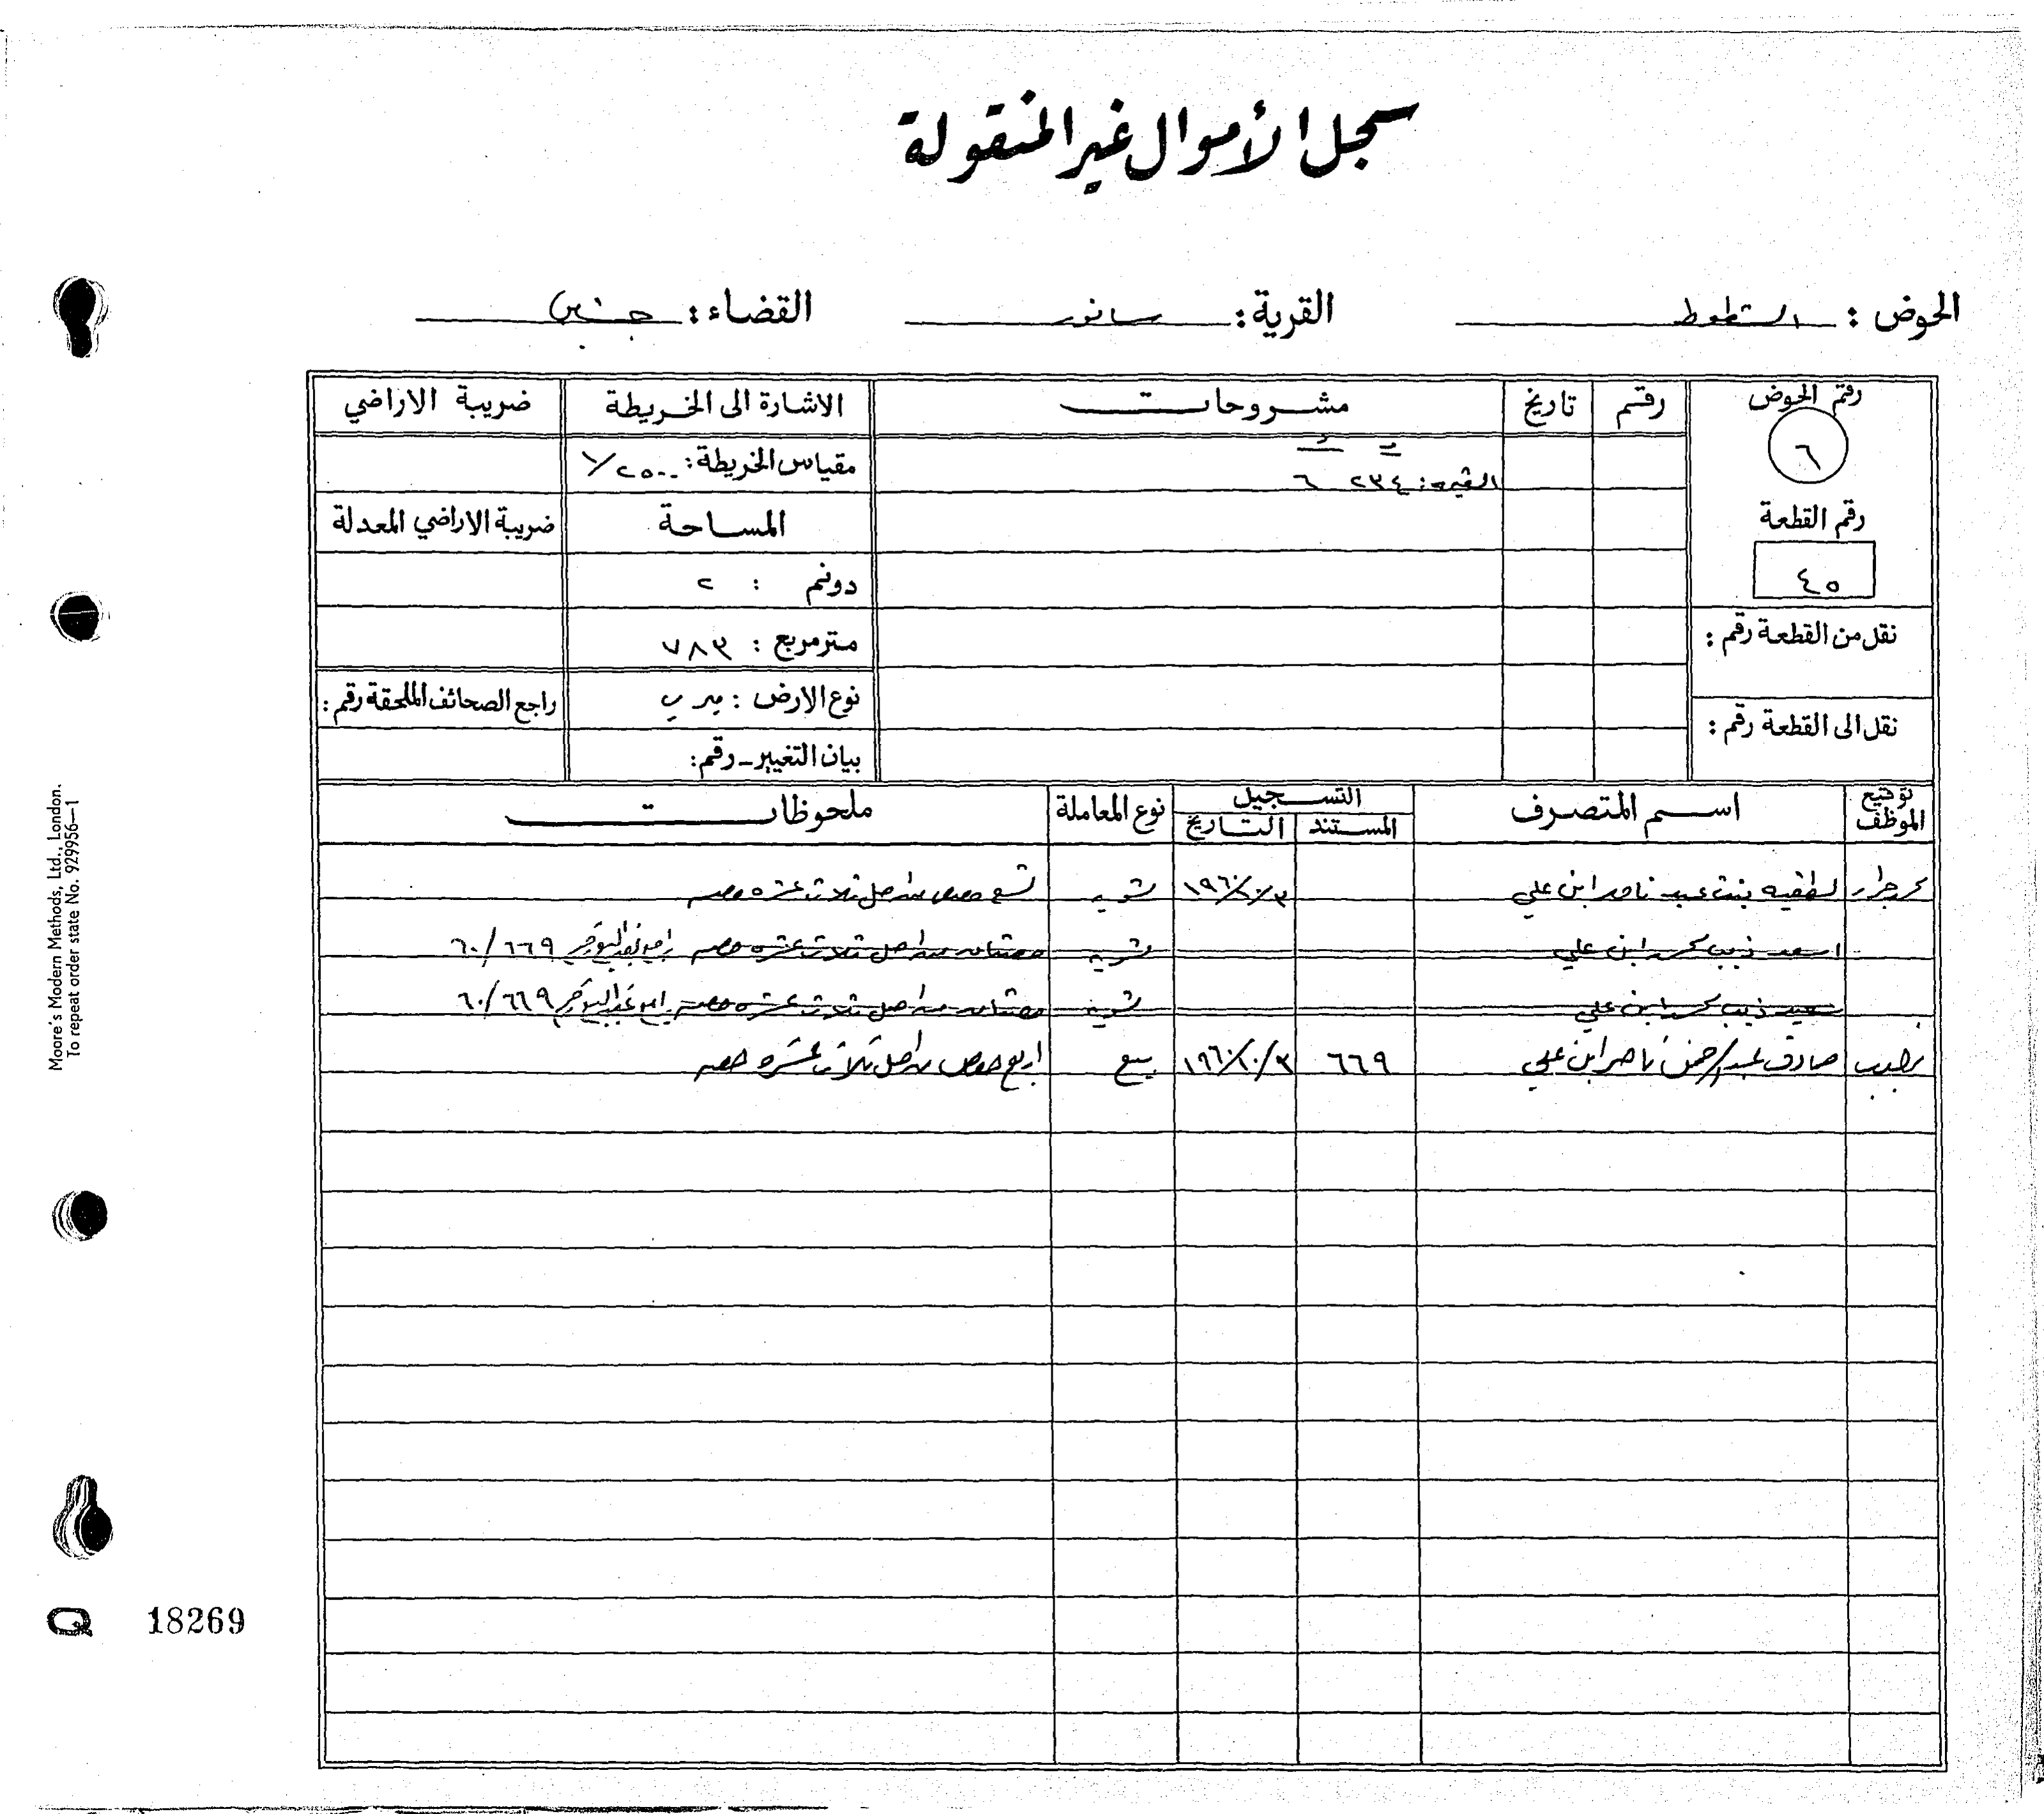 سجل الأموال غير المنقولة
الحوض : الشطوط القرية : سانور القضاء : جنين
رقم الحوض رقم تاريخ مشروحات الاشارة الى الخريطة ضريبة الاراضي
٦ مقياس الخريطة : ١/٢٥٠٠
القيمة : ٢٣٤ ٦
رقم القطعة المساحة ضريبة الاراضي المعدلة
٤٥ دونم : ٢
نقل من القطعة رقم : مترمربع : ٧٨٣
نوع الارض : ميري راجع الصحائف الملحقة رقم :
نقل الى القطعة رقم :
بيان التغيير - رقم :
توقيع الموظف اسم المتصرف التسجيل نوع المعاملة ملحوظات
المستند التاريخ
لطفيه بنت عبد ناصر ابن علي ١٩٦٠/١٠/٣ تسويه تسع حصص من اصل ثلاث عشره حصه
اسعد ذيب محمد ابن علي تسويه حصتان من اصل ثلاث عشره حصه راجع عقد البيع رقم ٦٠/٦٦٩
سعيد ذيب محمد ابن علي تسويه حصتان من اصل ثلاث عشره حصه راجع عقد البيع رقم ٦٠/٦٦٩
صادق عبد الرحمن ناصر ابن علي ٦٦٩ ١٩٦٠/١٠/٣ بيع اربع حصص من اصل ثلاث عشره حصه
Moore's Modern Methods, Ltd., London.
To repeat order state No. 929956—1
Q 18269